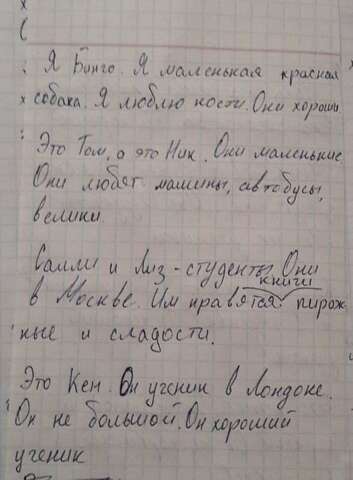 Я Бинго. Я маленькая красная
собака. Я люблю кости. Они хороши
Это Том, а это Ник. Они маленькие.
Они любят машины, автобусы,
велики
Салли и Лиз - студенты. Они
книги
в Москве. Им нравятся пирож-
ные и сладости.
Это Кен. Он ученик в Лондоне.
Он не большой. Он хороший
ученик